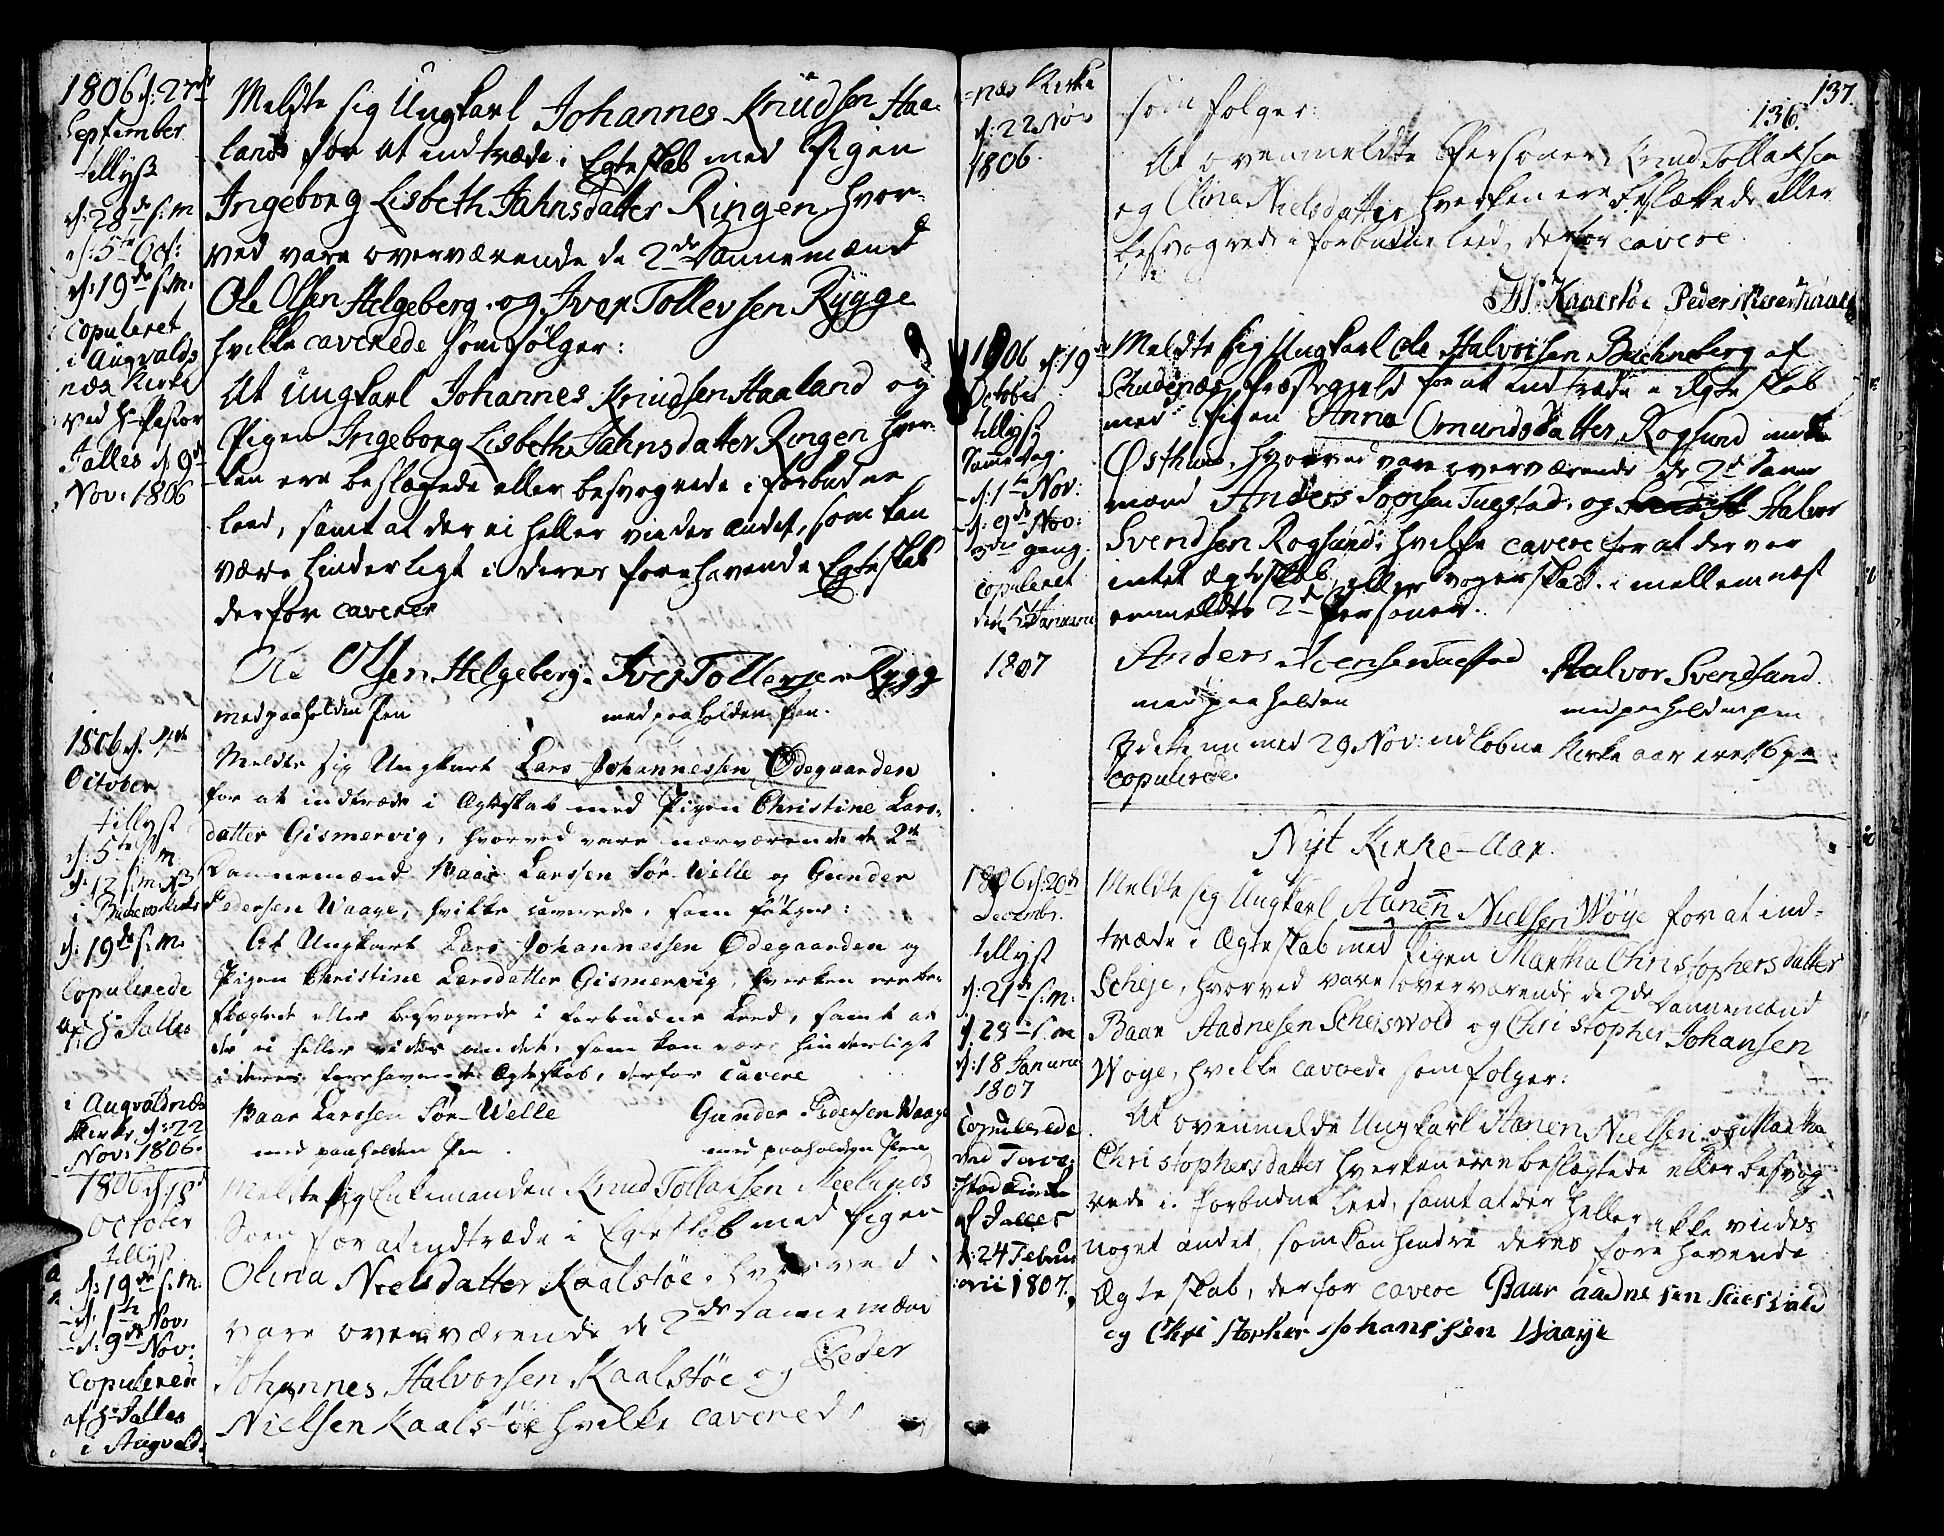 1806 d: 27de
September
tillyst
d: 28de s: m
d: 5te Oct:
d: 19de s: m.
copuleret
i Augvalds
næs Kirke
ved Hr Pastor
Salles d 9de
Nov: 1806
Meldte sig Ungkarl Johannes Knudsen Haa-
land for at indtræde i Egteskab med Pigen
Ingeborg Lisbeth Jahnsdatter Ringen, hvor-
ved vare overværende de 2de Dannemænd
Ole Olsen Helgeberg og Iver Tollevsen Rygge
hvilke caverede som følger:
At Ungkarl Johannes Knudsen Haaland og
Pigen Ingeborg Lisbeth Jahnsdatter Ringen hver-
ken ere beslægtede eller besvogrede i forbudne
Leed, samt at der ei heller vides andet, som kan
være hinderligt i deres forehavende Egteskab
derfor caverer
Ole Olsen Helgeberg. Iver Tollevsen Rygg
med paaholden Pen med paaholden Pen.
1806 d. 4de
October
tillyst
d: 5te s: m
d: 12 s: m
d: 19de s: m.
Copulerede
af Hr Salles
i Augvaldnæs
Kirke, d: 22
Nov: 1806.
Meldte sig Ungkarl Lars Johannessen Ødegaarden
for at indtræde i Ægteskab med Pigen Christine Lars-
datter Gismervig, hvorved vare nærværende de 2de
Dannemænd Baar Larssen Sør-Welle og Gunder
Pedersen Waage, hvilke caverede, som følger:
At Ungkarl Lars Johannessen Ødegaarden og
Pigen Christine Larsdatter Gismervig, hverken ere be-
slægtede eller besvogrede i forbudne Leed, samt at
der ei heller vides andet, som kan være hinderligt
i deres forehavende Ægteskab, derfor cavere
Baar Larssen Sør-Welle Gunder Pedersen Waage
med paaholden Pen med paaholden Pen
1806 d 18de
October
tillyst
d: 19de s: m.
- d: 1te Nov:
- d: 9de Nov:
Copulerede
af Hr Salles
i Augvald-
Meldte sig Enkemanden Knud Tollaksen
for at indtræde i Egteskab med Pigen
Olina Nielsdatter Kaalstøe, hvorved
vare overværende de 2de Dannemænd
Johannes Halvorsen Kaalstøe og Peder
Nielsen Kaalstøe hvilke caverede
137.
136.
=næs Kirke
d: 22 Nov
1806.
som følger:
At ovenmeldte Personer Knud Tollaksen
og Olina Nielsdatter hverken ere beslægtede eller
besvogrede i forbudne Leed, derfor cavere
Kaalstøe Peder
1806 d 19de
October
tillyst
Samme dag.
- d: 1te Nov:
- d: 9de Nov:
3die gang.
copuleret
den 5 Januarii
1807
Meldte sig Ungkarl Ole Halvorsen Buehneberg af
Schudenæs Præstegield for at indtræde i Ægteskab
med Pigen Anna Omundsdatter Rogsund
Østhuus, hvorved vare overværende de 2de Danne
mænd Anders Joensen Tuestad, og Halvor
Svendsen Rogsund, hvilke cavere for at der var
intet Ægteskab eller Svogerskab i mellem næst
anmeldte 2de Personer.
Anders Joensen Tuestad Halvor Svendsand
med paaholden med paaholden pen
I dette nu med 29 Nov: udløbne Kirke aar ere 16 pa
copulerede.
Nyt Kirke-Aar.
1806 d: 20de
Decembr.
tillyst
d: 21de s: m.
d. 28de s: m
d: 18 Januarii
1807
Copulerede
ved Torve-
stad Kirke
af Salles
d: 24 Febru
arii 1807.
Meldte sig Ungkarl Aanen Nielsen Woye for at ind-
træde i Ægteskab med Pigen Martha Christophersdatter
Scheje, hvorved vare overværende de 2de Dannemænd
Baar Aadnesen Scheiswold og Christopher Johansen
Woye, hvilke caverede som følger:
At ovenmelde Ungkarl Aanen Nielsen og Martha
Christophersdatter hverken ere beslægtede eller besvog
rede i forbudne Leed, samt at der heller ikke vides
noget andet, som kan hindre deres forehavende
Ægteskab, derfor cavere Baar aadnesen
og Christopher Johanssen Waaye